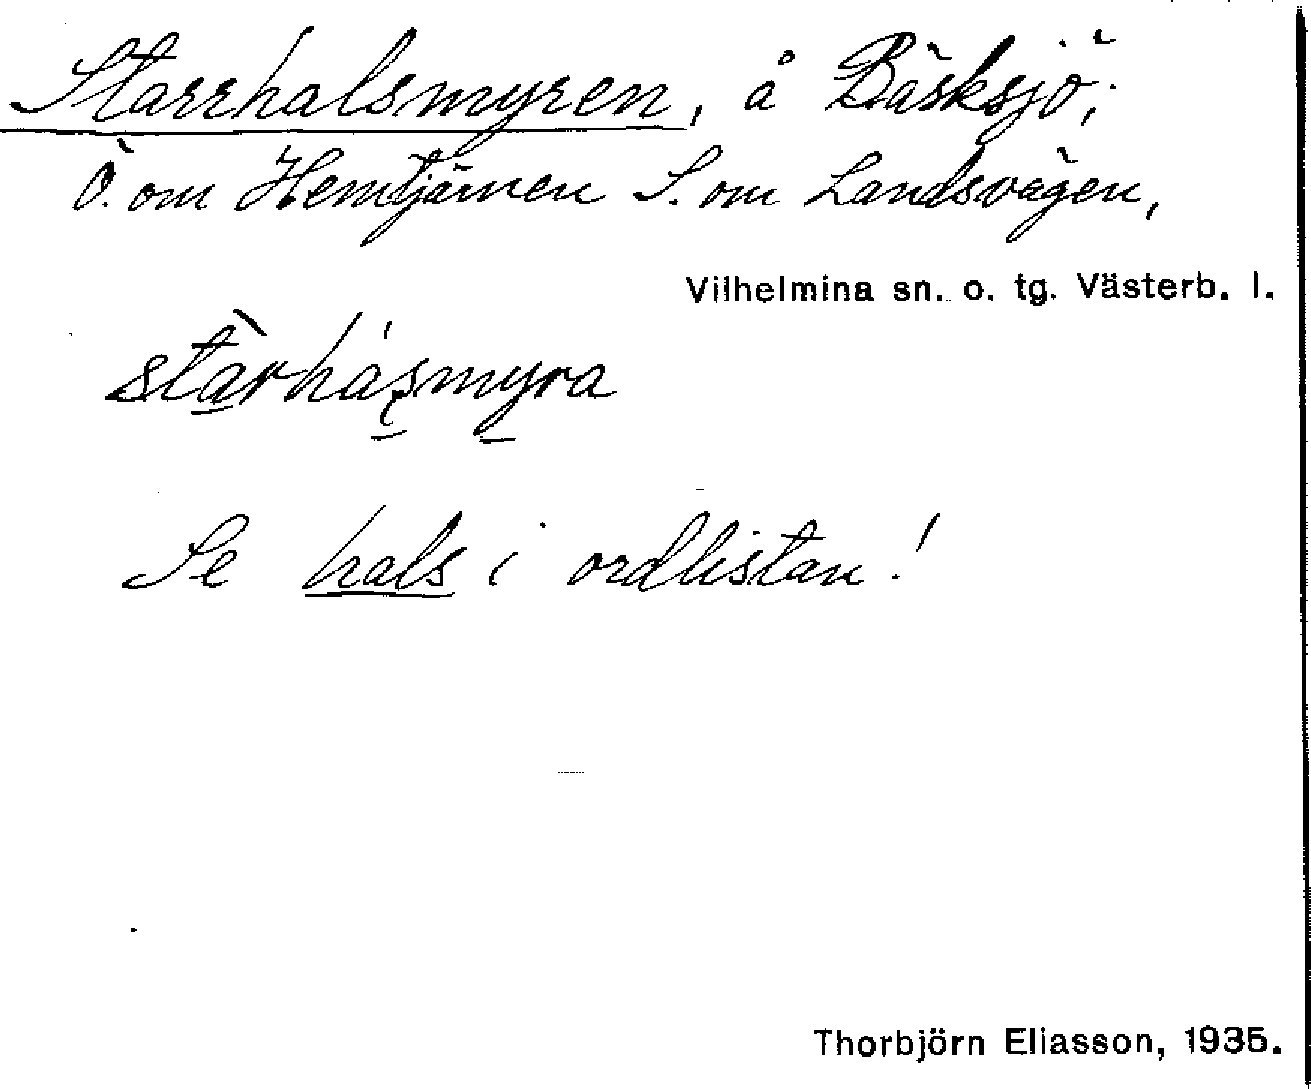 Starrhalsmyren, å Bäsksjö;
Ö. om Hemtjärnen S. om Landsvägen,
Vilhelmina sn. o. tg. Västerb. l.
stàrhá̱s̨my̱ra
Se hals i ordlistan!
Thorbjörn Eliasson, 1935.